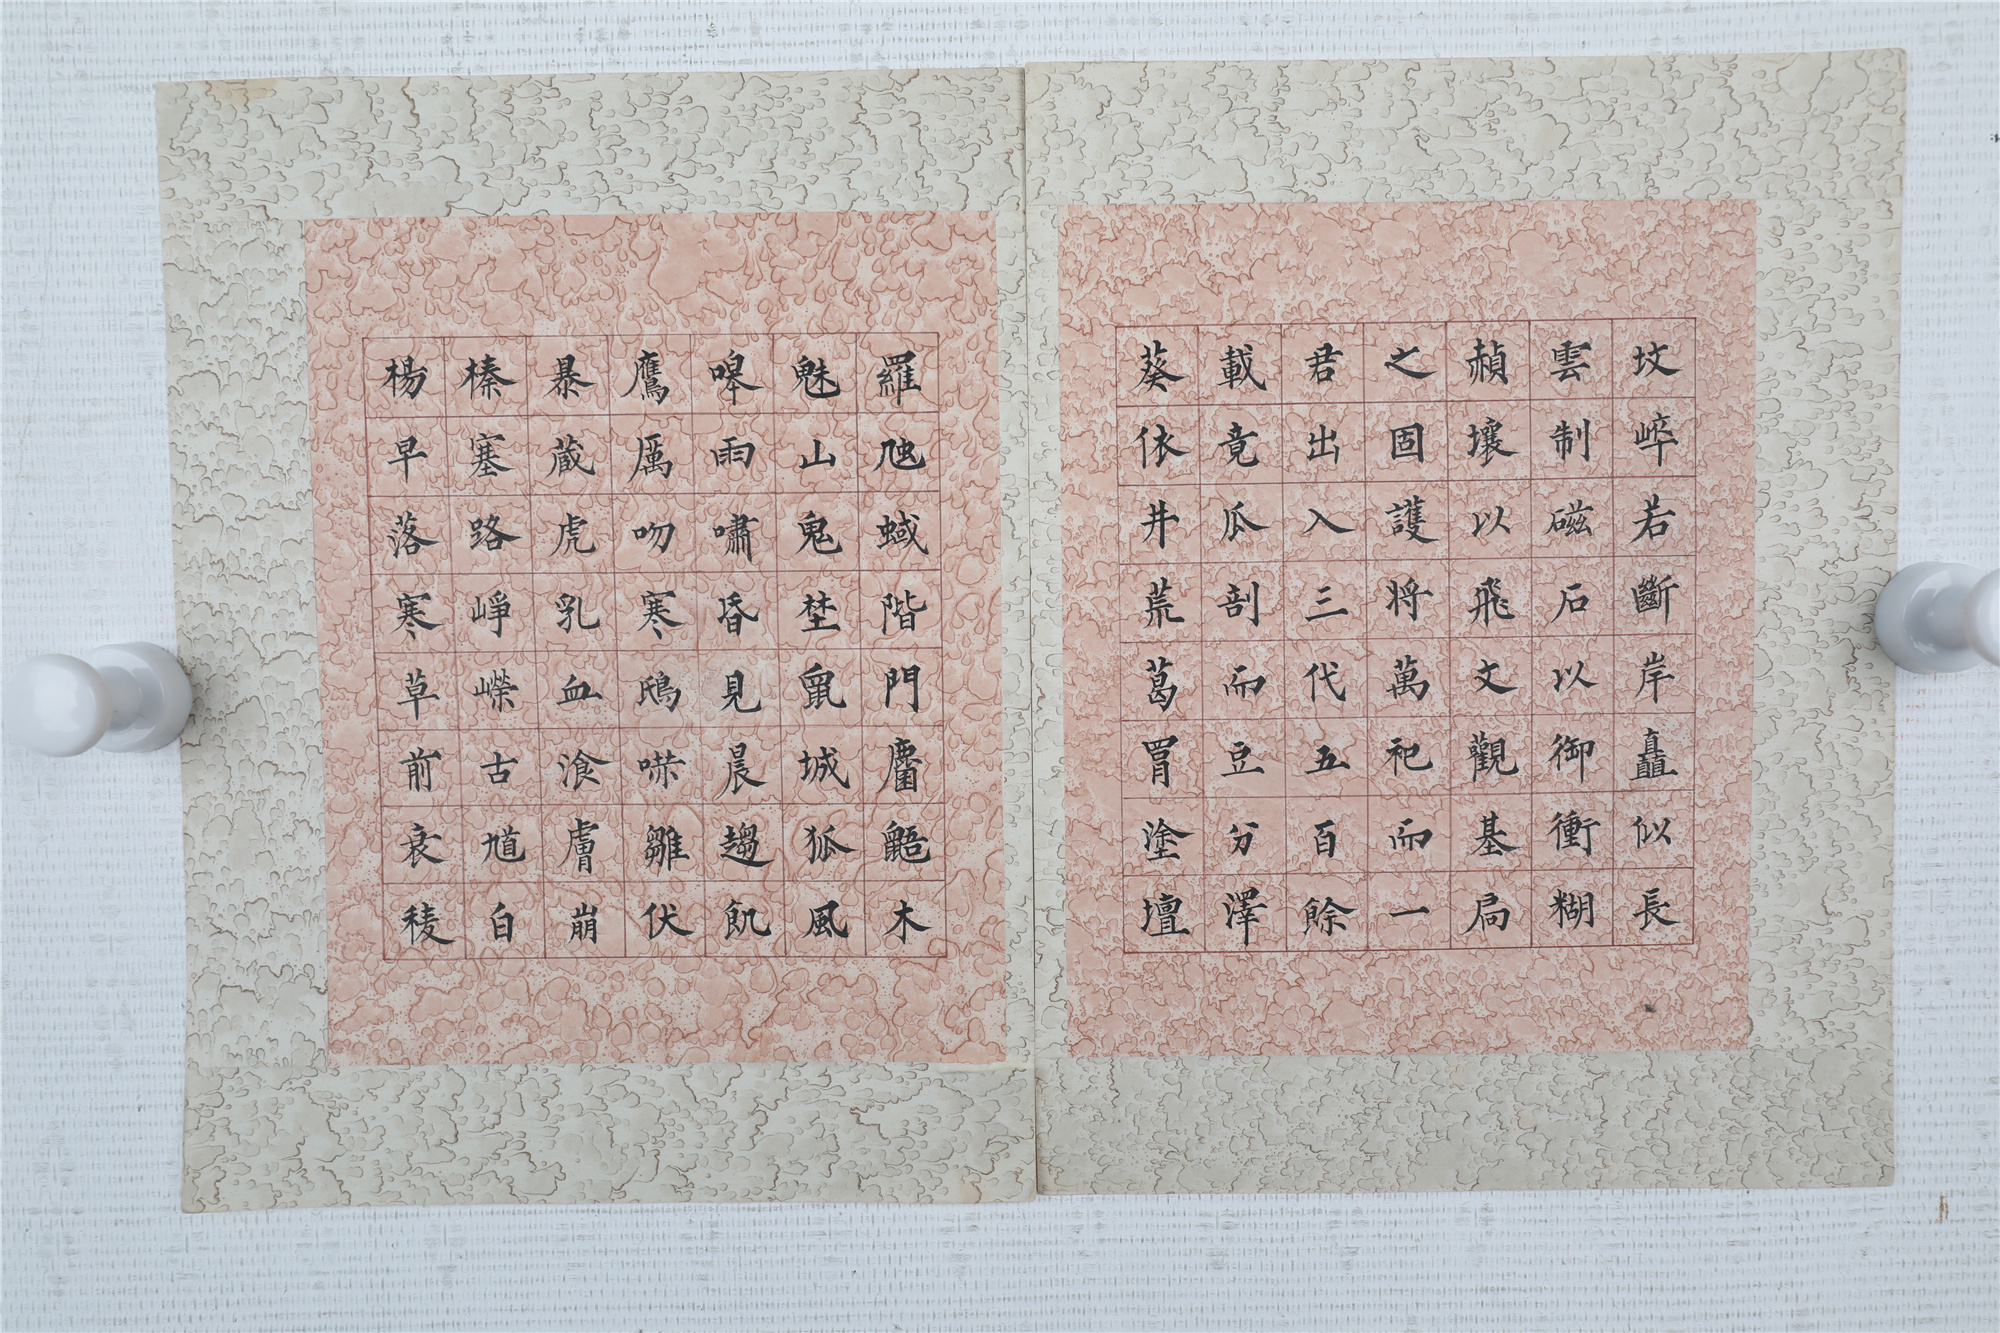 坟崪若斷岸矗似長
雲制磁石以御衝糊
赬壤以飛文觀基扃
之固護將萬祀而一
君出入三代五百餘
載竟瓜剖而豆分澤
葵依井荒葛罥塗壇
羅虺蜮階門麏鼯木
魅山鬼埜鼠城狐風
嘷雨嘯昏見晨趨飢
鷹厲吻寒鴟嚇雛伏
暴藏虎乳血飡膚崩
榛塞路崢嶸古馗白
楊早落寒草前衰稜